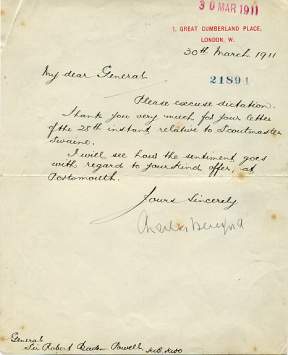 30 MAR 1911
1, GREAT CUMBERLAND PLACE,
LONDON, W.
30th March 1911
My dear General
21891
Please excuse dictation.
Thank you very much for your letter
of the 28th instant relative to Scoutmaster
Swaine.
I will see how the sentiment goes
with regard to your kind offer, at
Portsmouth.
Yours Sincerely
Charles Beresford
General
Sir Robert Baden Powell